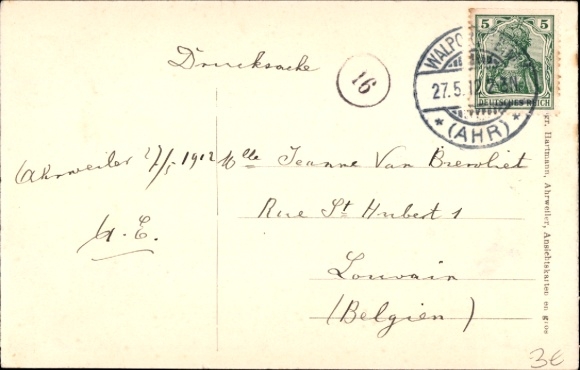 Drucksache
16
WALPO
27.5.12
* (AHR) *
5 5
DEUTSCHES REICH
Ahrweiler 27/5 1912
Mlle Jeanne Van Brervliet
Rue St Hubert 1
Louvain
(Belgien)
Hartmann, Ahrweiler, Ansichtskarten en gros
3€